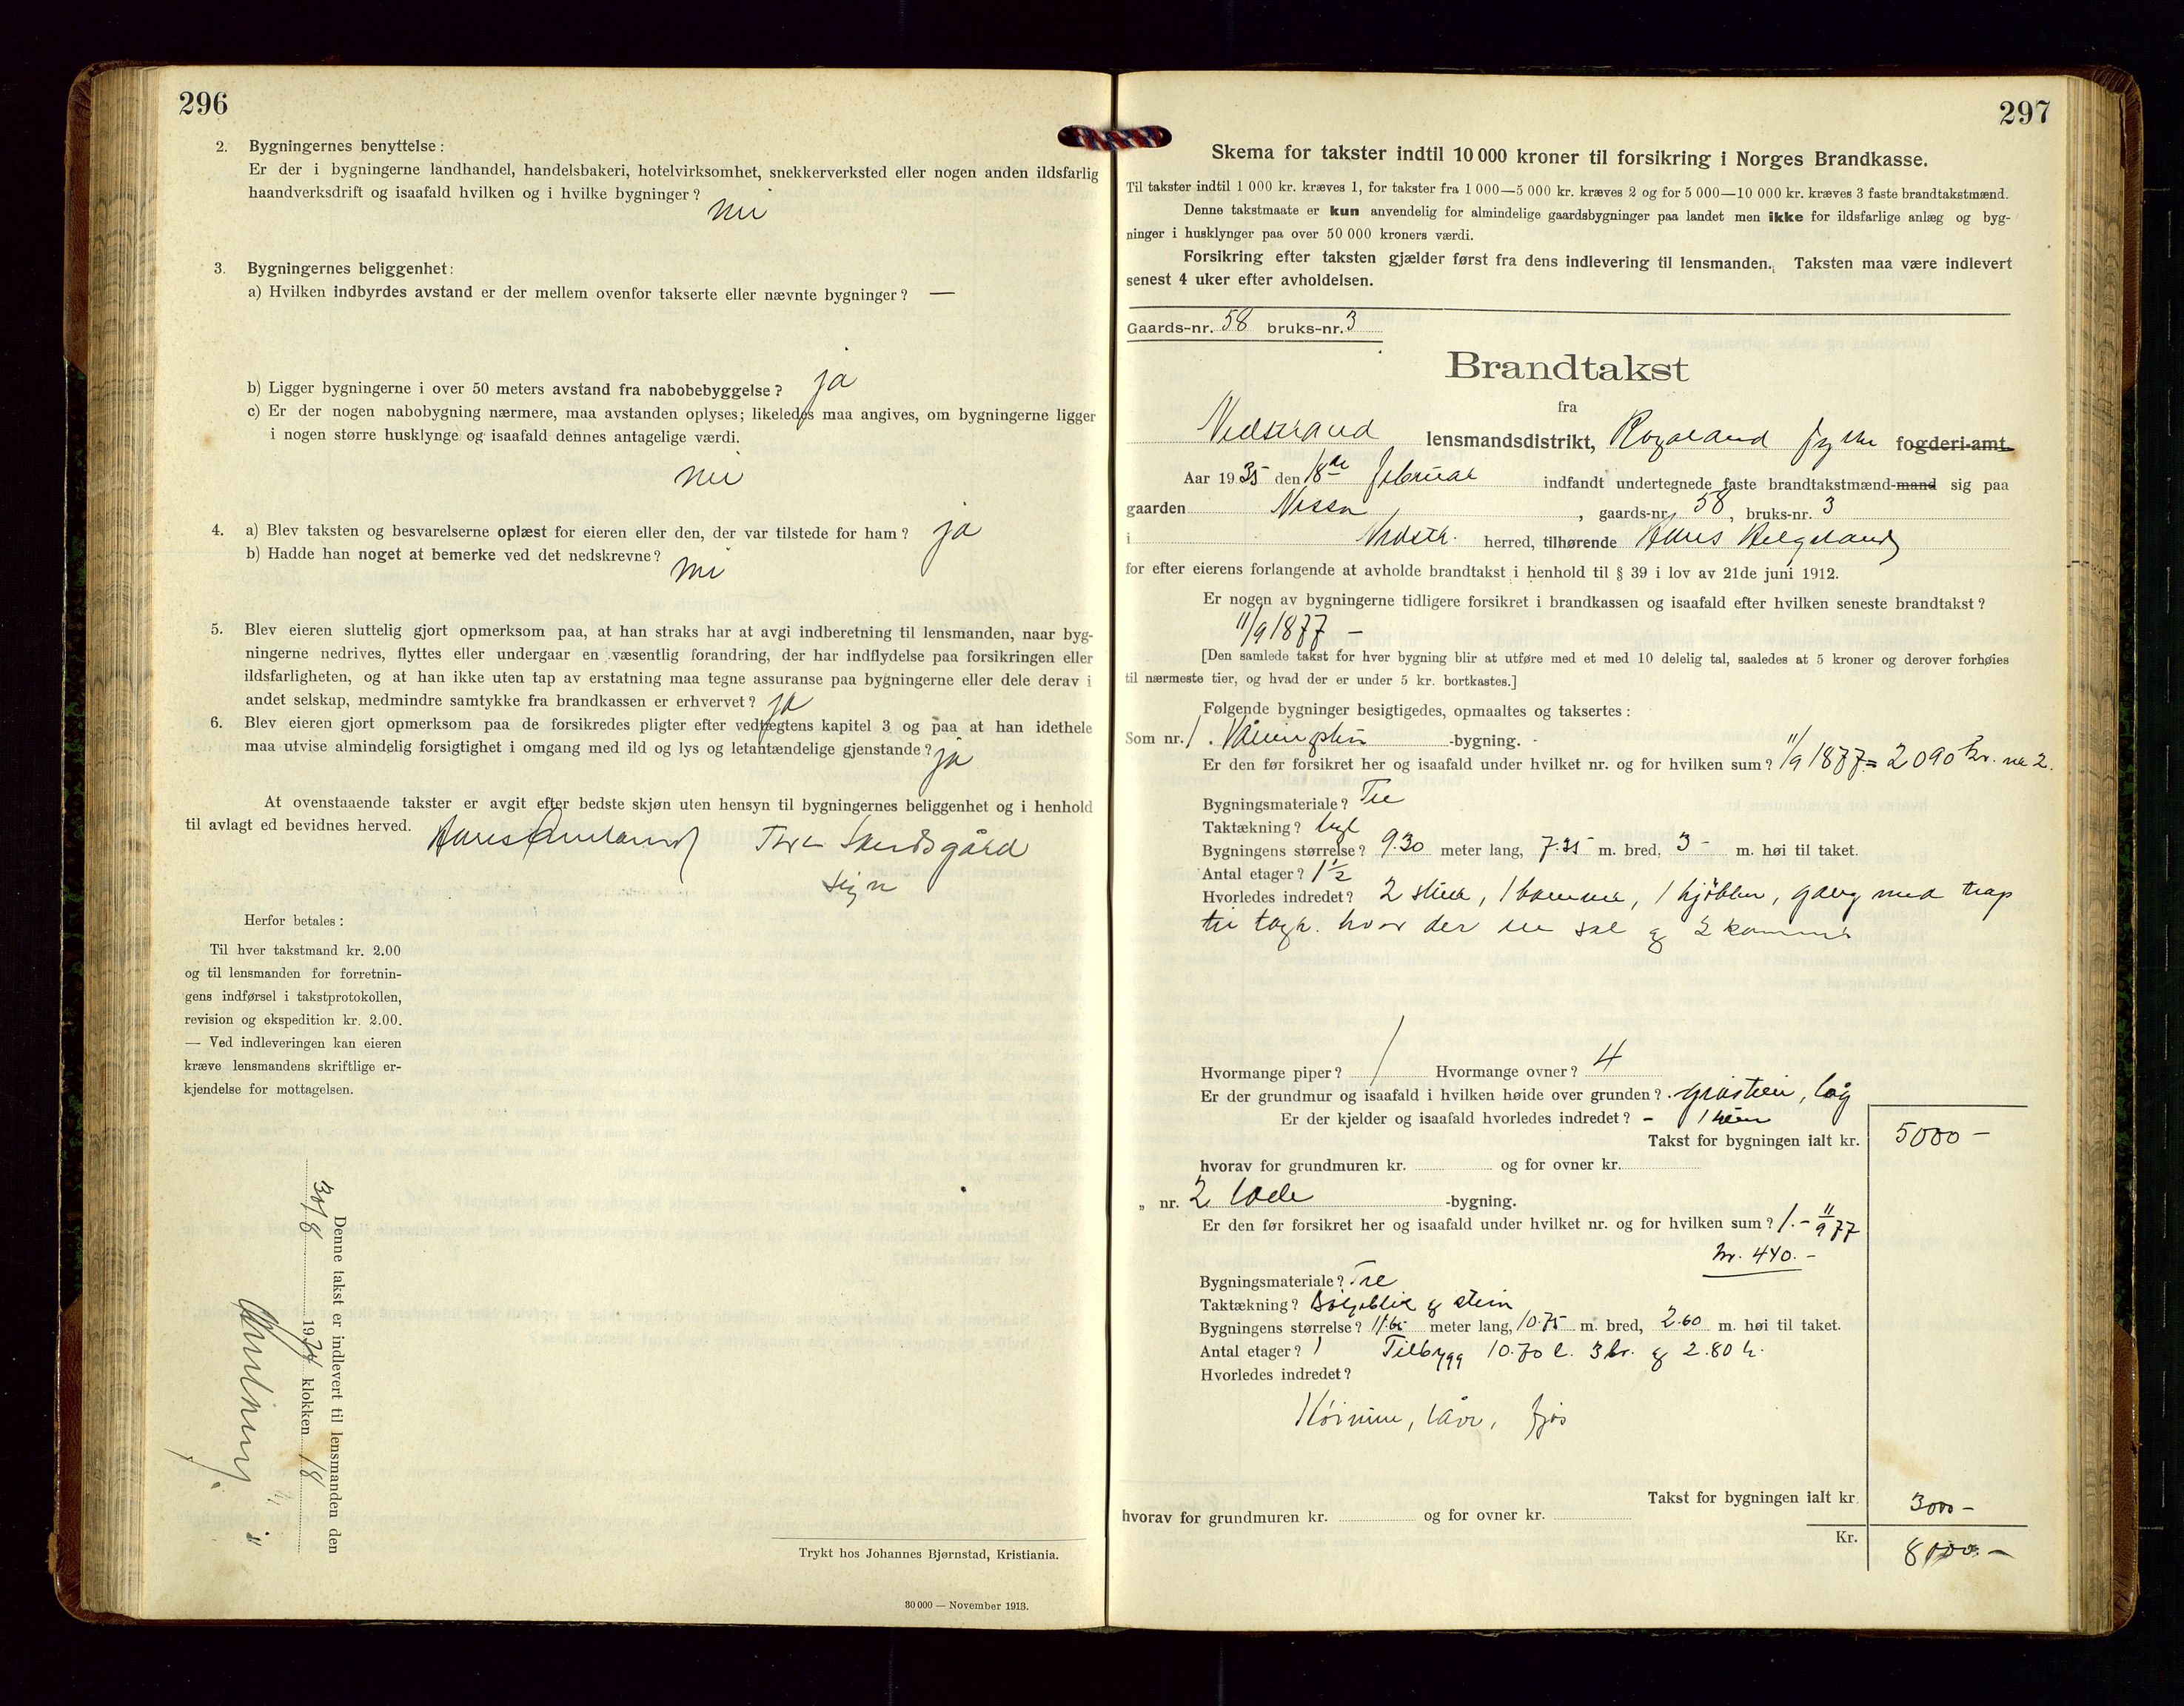 296
2. Bygningernes benyttelse:
Er der i bygningerne landhandel, handelsbakeri, hotelvirksomhet, snekkerverksted eller nogen anden ildsfarlig
haandverksdrift og isaafald hvilken og i hvilke bygninger? nei
3. Bygningernes beliggenhet:
a) Hvilken indbyrdes avstand er der mellem ovenfor takserte eller nævnte bygninger? —
b) Ligger bygningerne i over 50 meters avstand fra nabobebyggelse? ja
c) Er der nogen nabobygning nærmere, maa avstanden oplyses; likeledes maa angives, om bygningerne ligger
i nogen større husklynge og isaafald dennes antagelige værdi.
nei
4. a) Blev taksten og besvarelserne oplæst for eieren eller den, der var tilstede for ham? ja
b) Hadde han noget at bemerke ved det nedskrevne? nei
5. Blev eieren sluttelig gjort opmerksom paa, at han straks har at avgi indberetning til lensmanden, naar byg-
ningerne nedrives, flyttes eller undergaar en væsentlig forandring, der har indflydelse paa forsikringen eller
ildsfarligheten, og at han ikke uten tap av erstatning maa tegne assuranse paa bygningerne eller dele derav i
andet selskap, medmindre samtykke fra brandkassen er erhvervet? ja
6. Blev eieren gjort opmerksom paa de forsikredes pligter efter vedtægtens kapitel 3 og paa at han idethele
maa utvise almindelig forsigtighet i omgang med ild og lys og letantændelige gjenstande? ja
At ovenstaaende takster er avgit efter bedste skjøn uten hensyn til bygningernes beliggenhet og i henhold
til avlagt ed bevidnes herved.
Hans Amland Tore Sandsgård
sign
Herfor betales:
Til hver takstmand kr. 2.00
og til lensmanden for forretnin-
gens indførsel i takstprotokollen,
revision og ekspedition kr. 2.00.
— Ved indleveringen kan eieren
kræve lensmandens skriftlige er-
kjendelse for mottagelsen.
Denne takst er indlevert til lensmanden den
30/8 1934 klokken 18
Trykt hos Johannes Bjørnstad, Kristiania.
30 000 — November 1913.
297
Skema for takster indtil 10 000 kroner til forsikring i Norges Brandkasse.
Til takster indtil 1 000 kr. kræves 1, for takster fra 1 000—5 000 kr. kræves 2 og for 5 000—10 000 kr. kræves 3 faste brandtakstmænd.
Denne takstmaate er kun anvendelig for almindelige gaardsbygninger paa landet men ikke for ildsfarlige anlæg og byg-
ninger i husklynger paa over 50 000 kroners værdi.
Forsikring efter taksten gjælder først fra dens indlevering til lensmanden. Taksten maa være indlevert
senest 4 uker efter avholdelsen.
Gaards-nr. 58 bruks-nr. 3
Brandtakst
fra
Nedstrand lensmandsdistrikt, Rogaland fylke fogderi-amt.
Aar 1935 den 18de februar indfandt undertegnede faste brandtakstmænd-mand sig paa
gaarden Nessa, gaards-nr. 58, bruks-nr. 3
i Nedstr. herred, tilhørende Hans Helgeland
for efter eierens forlangende at avholde brandtakst i henhold til § 39 i lov av 21de juni 1912.
Er nogen av bygningerne tidligere forsikret i brandkassen og isaafald efter hvilken seneste brandtakst?
11/9 1877 —
[Den samlede takst for hver bygning blir at utføre med et med 10 delelig tal, saaledes at 5 kroner og derover forhøies
til nærmeste tier, og hvad der er under 5 kr. bortkastes.]
Følgende bygninger besigtigedes, opmaaltes og taksertes:
Som nr. 1. Våningshus -bygning.
Er den før forsikret her og isaafald under hvilket nr. og for hvilken sum? 11/9 1877 = 2090 kr. nr 2.
Bygningsmateriale? Tre
Taktækning? tegl
Bygningens størrelse? 9.30 meter lang, 7.35 m. bred, 3 - m. høi til taket.
Antal etager? 1 1/2
Hvorledes indredet? 2 stuer, 1 kammer, 1 kjøkken, gang med trap
til logh. hvor der en sal og 2 kammer
Hvormange piper? 1 Hvormange ovner? 4
Er der grundmur og isaafald i hvilken høide over grunden? gråstein, låg
Er der kjelder og isaafald hvorledes indredet? -
Takst for bygningen ialt kr. 5000 -
hvorav for grundmuren kr. og for ovner kr.
„ nr. 2 løde -bygning.
Er den før forsikret her og isaafald under hvilket nr. og for hvilken sum? 1. - 11/9 77
kr. 440. -
Bygningsmateriale? Tre
Taktækning? Bølgeblik og stein
Bygningens størrelse? 11.65 meter lang, 10.75 m. bred, 2.60 m. høi til taket.
Antal etager? 1 Tilbygg 10.70 l. 3 br. og 2.80 h.
Hvorledes indredet?
Høirum, låve, fjøs
Takst for bygningen ialt kr. 3000 -
hvorav for grundmuren kr. og for ovner kr.
Kr. 8000. -